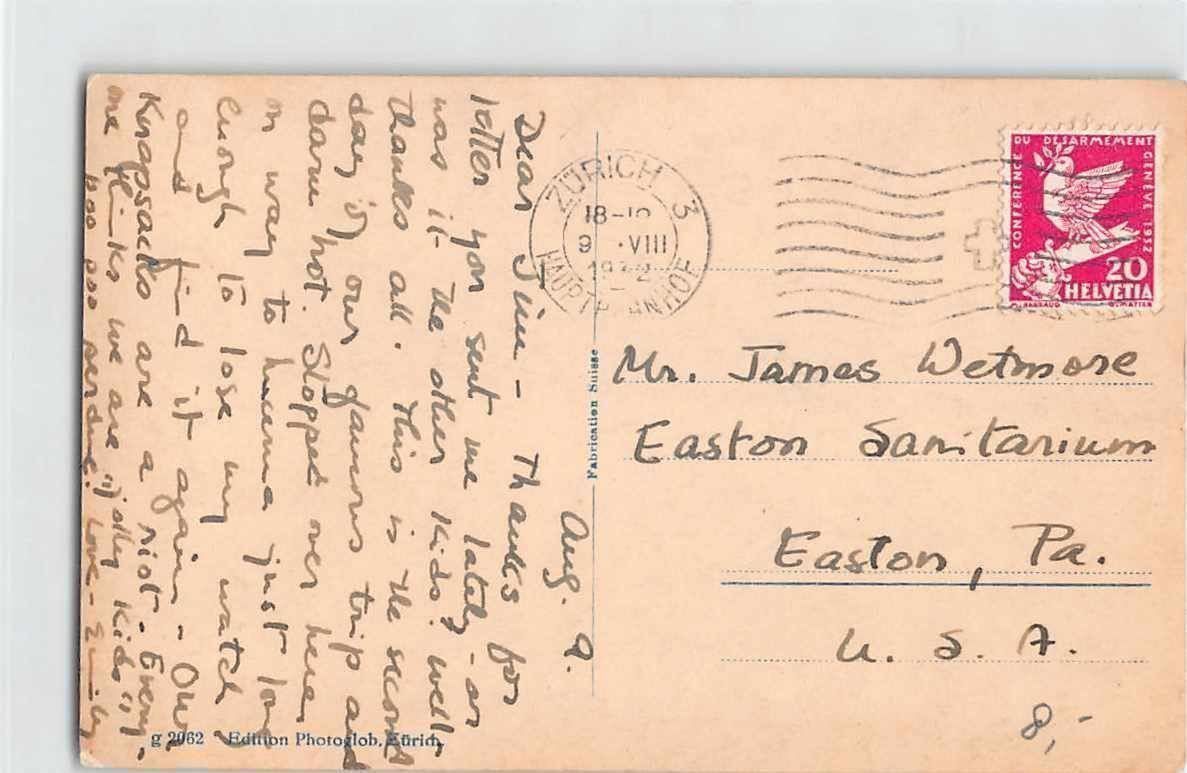 Aug. 9.
Dear Jim - Thanks for
letter you sent me lately - or
was it the other kids? well
thanks all. This is the second
day of our famous trip and
darn hot. Stopped over here
on way to Lucerne just long
enough to lose my watch
and find it again - Our
Knapsacks are a riot - Every-
one thinks we are "jolly kids"!
poo poo Love - Emily
Fabrication Suisse
g 2962 Edition Photoglob, Zürich.
ZÜRICH 3
18-19
9. VIII
1932
HAUPTBAHNHOF
CONFERENCE DU DESARMEMENT GENEVE 1932
20
HELVETIA
Mr. James Wetmore
Easton Sanitarium
Easton, Pa.
U. S. A.
8,-